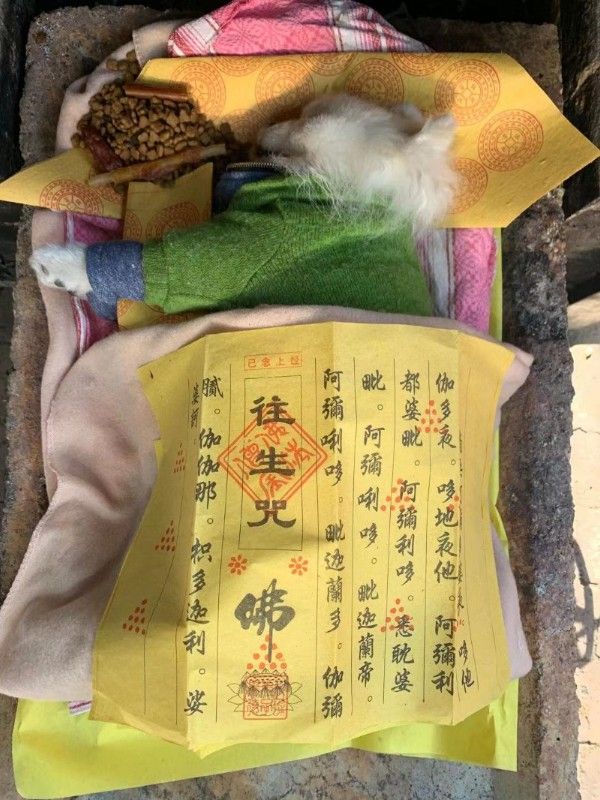 哆他
伽多夜。哆地夜他。阿彌利
都婆毗。阿彌利哆。悉耽婆
毗。阿彌唎哆。毗迦蘭帝。
阿彌唎哆。毗迦蘭多。伽彌
已念上經
往生咒
佛
膩。伽伽那。枳多迦利。娑
婆訶